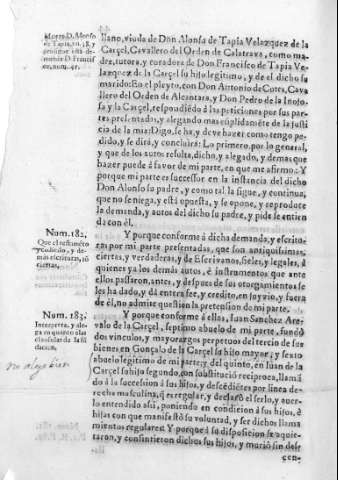 44
Morto D. Alonso
de Tapia, nu. 18. y
prosigue esta de-
manda D. Francis
co, num. 41.
llano, viuda de Don Alonso de Tapia Velazquez de la
Carçel, Cavallero del Orden de Calatrava, como ma-
dre, tutora, y curadora de Don Francisco de Tapia Ve-
lazquez de la Carçel su hijo legitimo, y de el dicho su
marido: En el pleyto, con Don Antonio de Cotes, Cava
llero del Orden de Alcantara, y Don Pedro de la Inojo-
sa, y la Carçel, respondiẽdo à las peticiones por sus par-
tes presentadas, y alegando mas cũplidamẽte de la justi
cia de la mia: Digo, se ha, y deve hazer como tengo pe-
dido, y se dirà, y concluirà: Lo primero, por lo general,
y que de los autos resulta, dicho, y alegado, y demas que
hazer puede à favor de mi parte, en que me afirmo: Y
porque mi parte es successor en la instancia del dicho
Don Alonso su padre, y como tal la sigue, y continua,
que no se niega, y està opuesta, y se opone, y reproduce
la demanda, y autos del dicho su padre, y pide se entien
da con èl.
Num. 182.
Que el testamẽto
y codicilo, y de-
más escrituras, sõ
ciertas.
Y porque conforme à dicha demanda, y escritu-
ras por mi parte presentadas, que son antiquissimas,
ciertas, y verdaderas, y de Escrivanos, fieles, y legales, à
quienes ya los demàs autos, è instrumentos que ante
ellos passaron, antes, y despues de sus otorgamientos se
les ha dado, y dà entera fee, y credito, en juyzio, y fuera
de èl, no admite question la pretension de mi parte.
Num. 183.
Interpreta, y ale-
ga en quanto à las
clausulas de la fũ
dacion.
no alega bien
Y porque conforme à ellas, Iuan Sanchez Are-
valo de la Carçel, septimo abuelo de mi parte, fundò
dos vinculos, y mayorazgos perpetuos del tercio de sus
bienes en Gonçalo de la Carçel su hijo mayor, y sexto
abuelo legitimo de mi parte; y del quinto, en Iuan de la
Carçel su hijo segundo, con substituciò reciproca, llamã
do à la successiõn à sus hijos, y descẽdiẽtes por linea de-
recha masculina, q̃ es regular, y declarò el serlo, y aver-
lo entendido assi, poniendo en condicion à sus hijos, è
hijas con que manifestò su voluntad, y ser dichos llama
mientos regulares: Y porque à su disposicion se aquie-
taron, y consintieron dichos sus hijos, y muriò sin desc
cen-